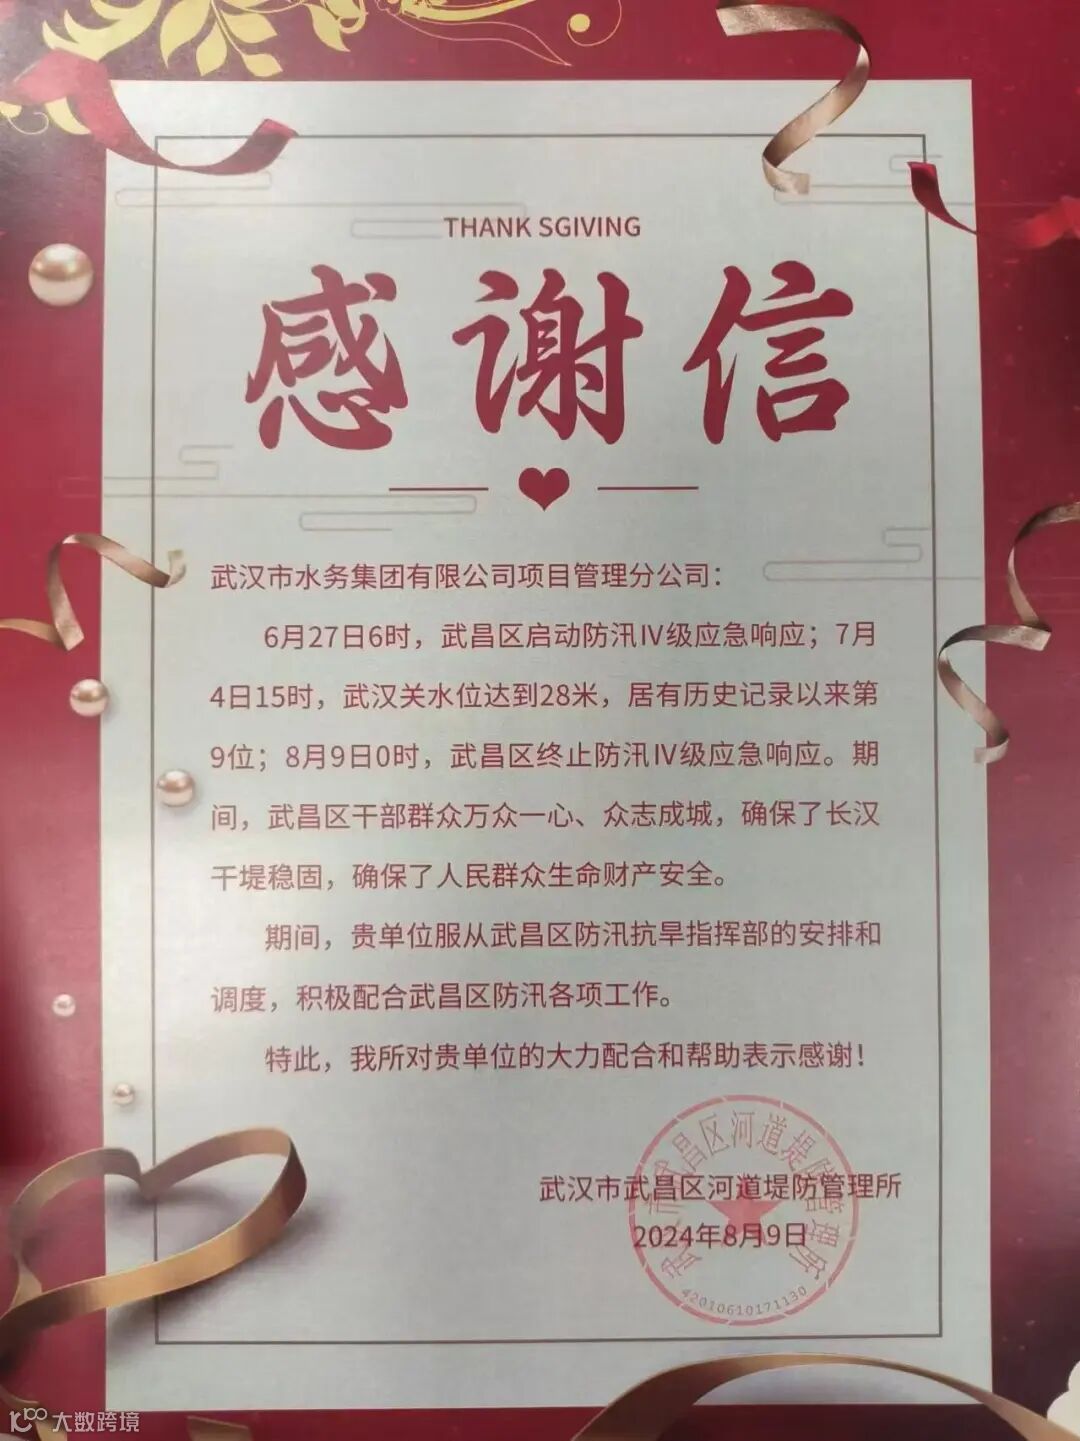 THANK SGIVING
感谢信
武汉市水务集团有限公司项目管理分公司：
6月27日6时，武昌区启动防汛Ⅳ级应急响应；7月
4日15时，武汉关水位达到28米，居有历史记录以来第
9位；8月9日0时，武昌区终止防汛Ⅳ级应急响应。期
间，武昌区干部群众万众一心、众志成城，确保了长汉
干堤稳固，确保了人民群众生命财产安全。
期间，贵单位服从武昌区防汛抗旱指挥部的安排和
调度，积极配合武昌区防汛各项工作。
特此，我所对贵单位的大力配合和帮助表示感谢！
武汉市武昌区河道堤防管理所
2024年8月9日
武汉市武昌区河道堤防管理所
42010610171130
大数跨境